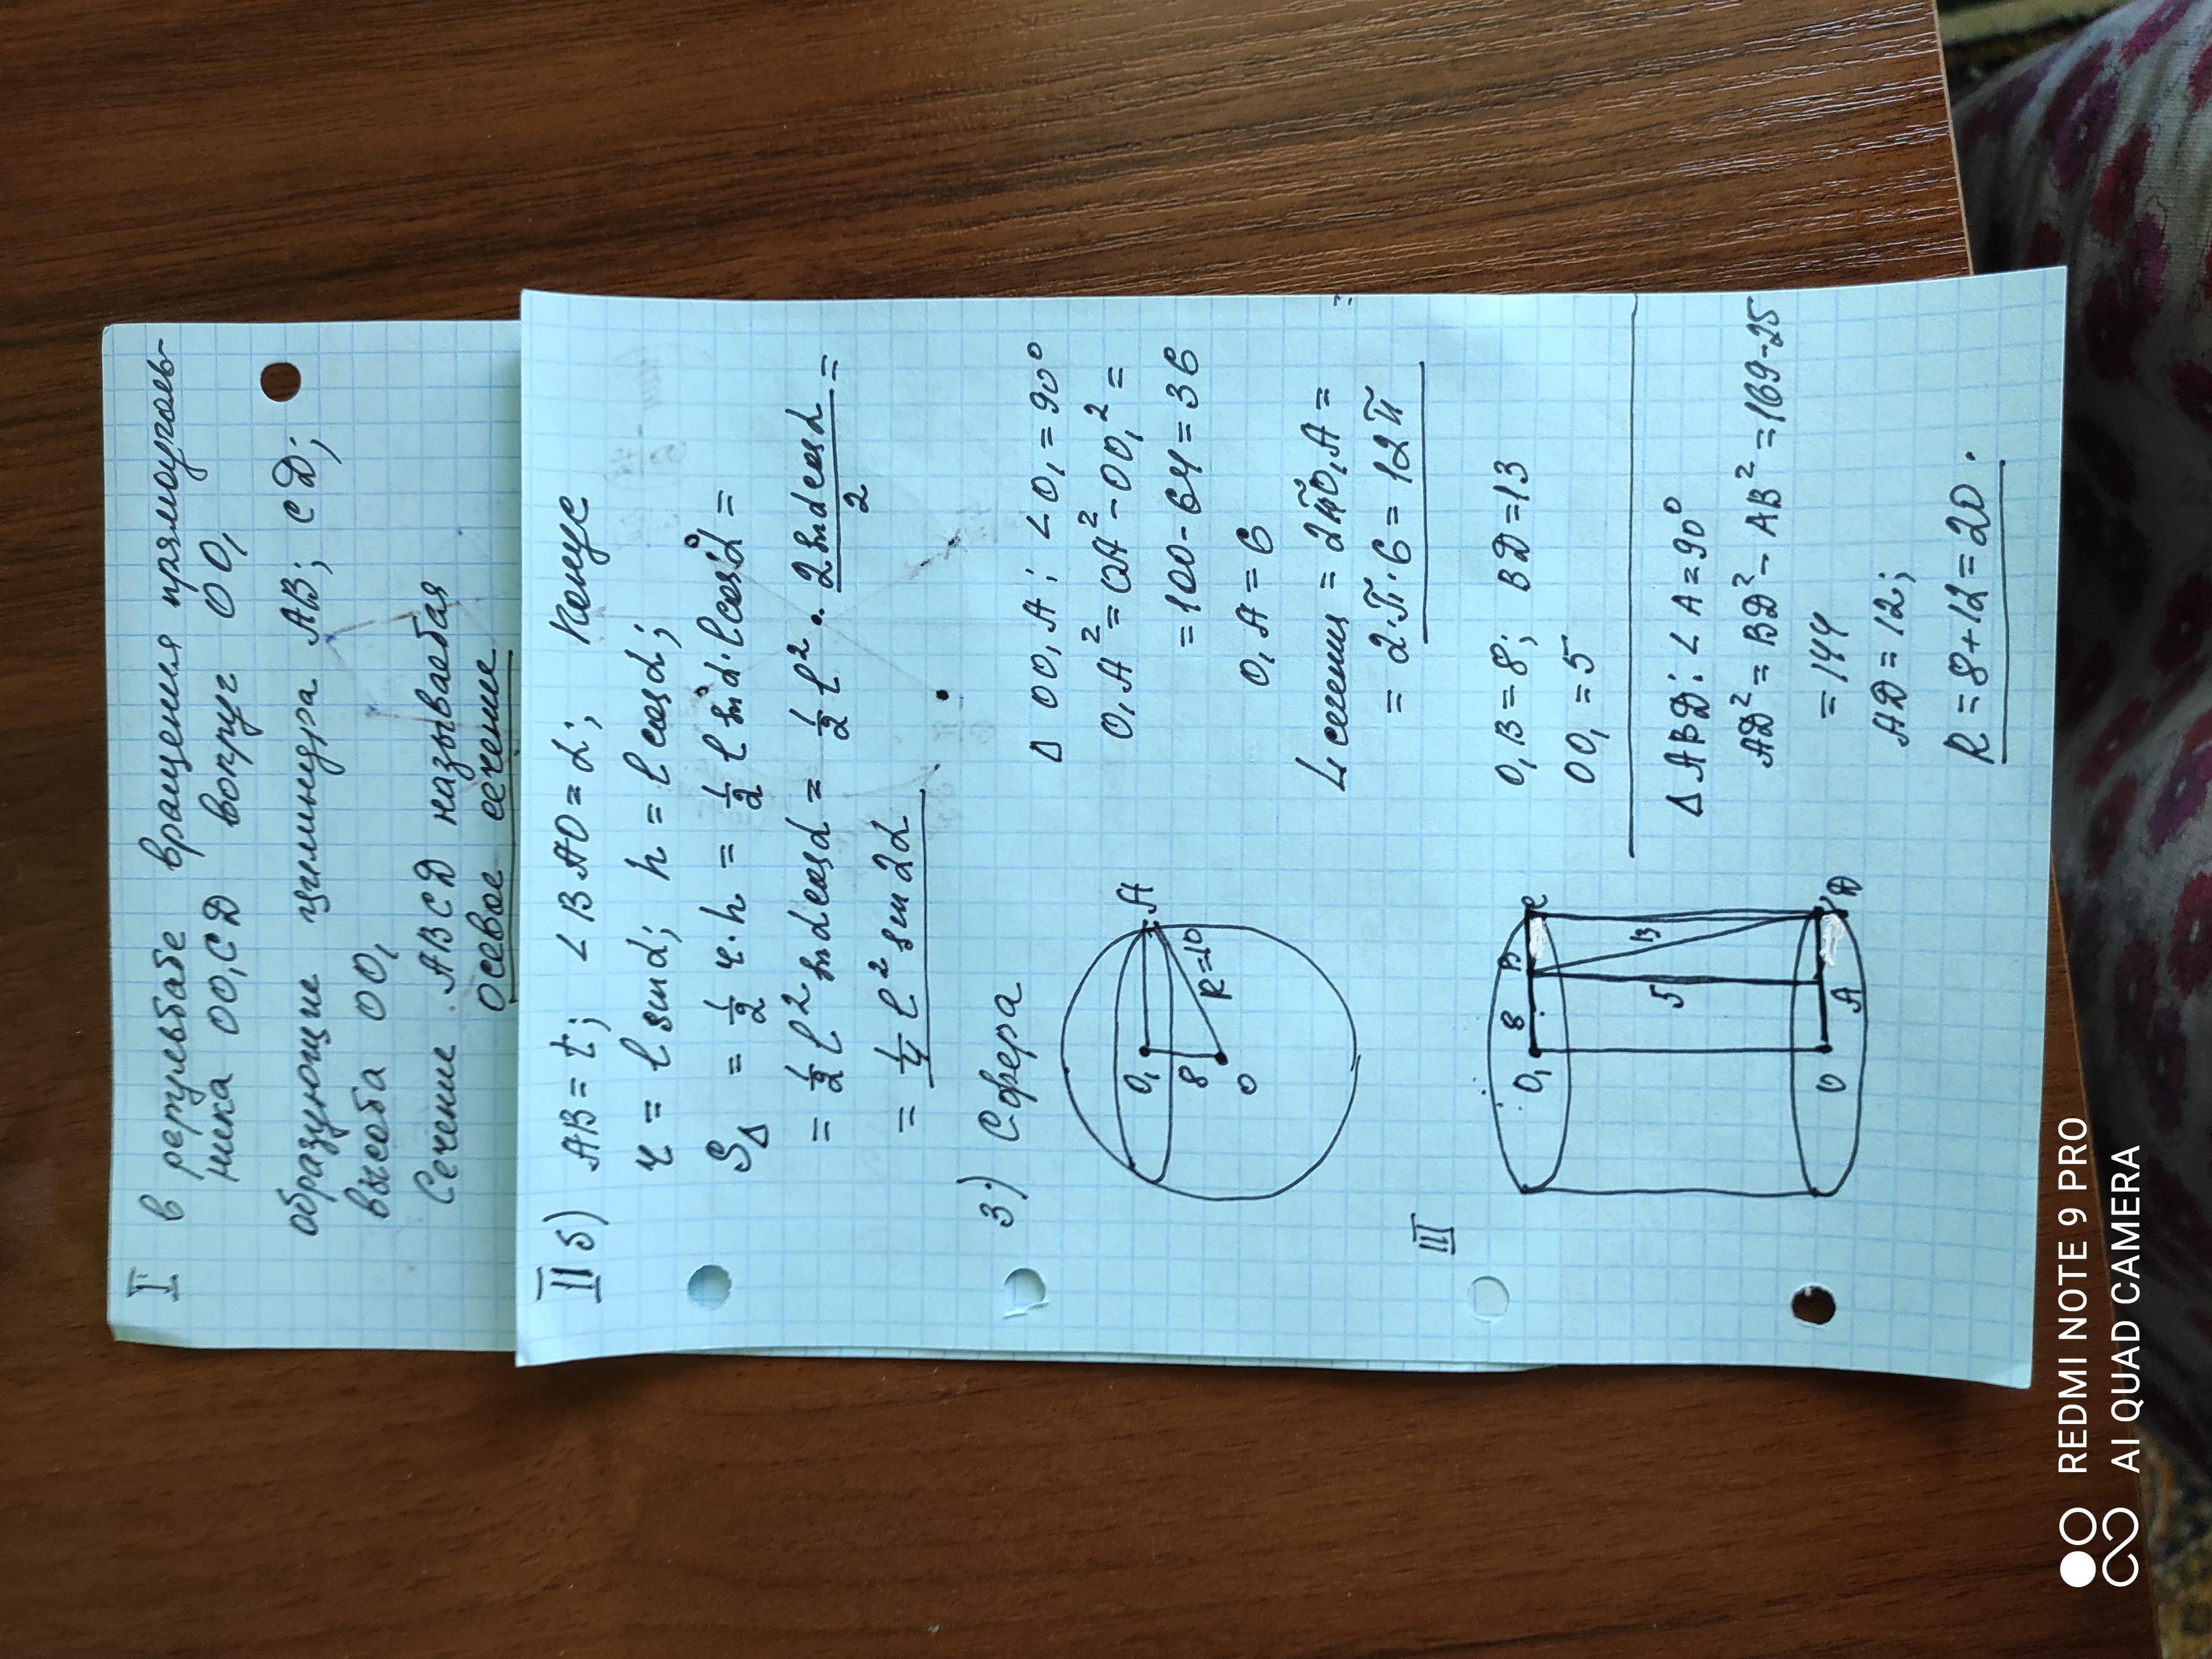 I в результате вращения прямоуголь-
ника OO₁CD вокруг OO₁
образующие цилиндра AB; CD;
высота OO₁
Сечение ABCD называется
осевое сечение
II б) AB = l; ∠BAO = α; Конус
r = l sinα; h = l cosα;
S△ = 1/2 r·h = 1/2 l sinα · l cosα =
= 1/2 l² sinα cosα = 1/2 l² · 2 sinα cosα / 2 =
= 1/4 l² sin 2α
3) Сфера
O₁
A
8
R=10
O
△ OO₁A: ∠O₁ = 90°
O₁A² = OA² - OO₁² =
= 100 - 64 = 36
O₁A = 6
L сечения = 2π O₁A =
= 2·π·6 = 12π
III
O₁
8
B
C
5
13
O
A
D
O₁B = 8; BD = 13
OO₁ = 5
△ ABD: ∠A = 90°
AD² = BD² - AB² = 169-25
= 144
AD = 12;
R = 8+12 = 20.
REDMI NOTE 9 PRO
AI QUAD CAMERA